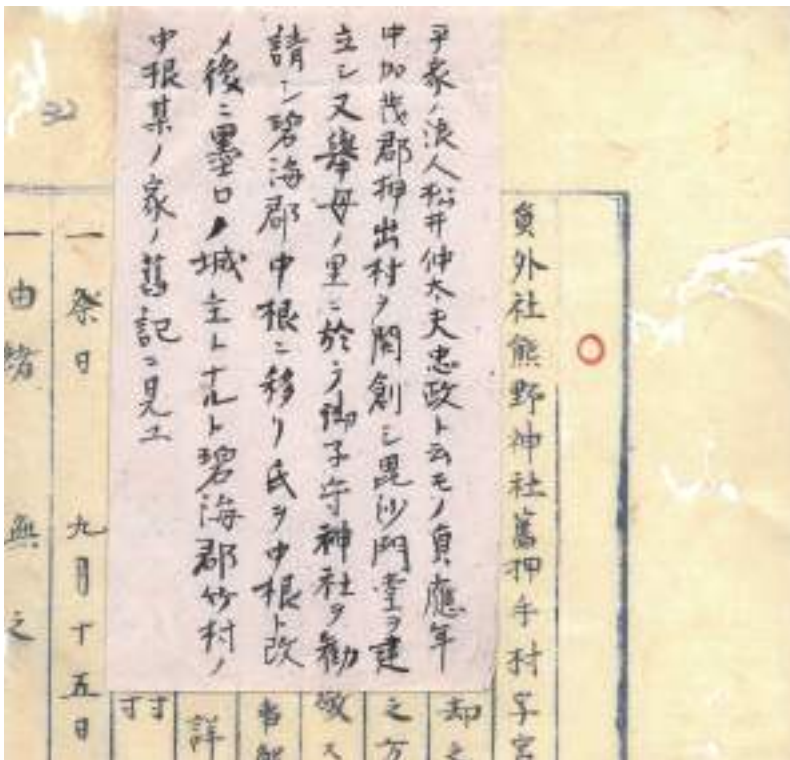 員外社熊野神社舊押手村字宮
平家ノ浪人松井仲太夫忠政ト云モノ貞應年
中加茂郡押出村ヲ開創シ毘沙門堂ヲ建
立シ又擧母ノ里ニ於テ御子守神社ヲ勸
請シ碧海郡中根ニ移リ氏ヲ中根ト改
メ後ニ墨口ノ城主トナルト碧海郡竹村ノ
中根某ノ家ノ舊記ニ見エ
却之
之方
敬ス
詳
村
一祭日 九月十五日
一由緒 無之